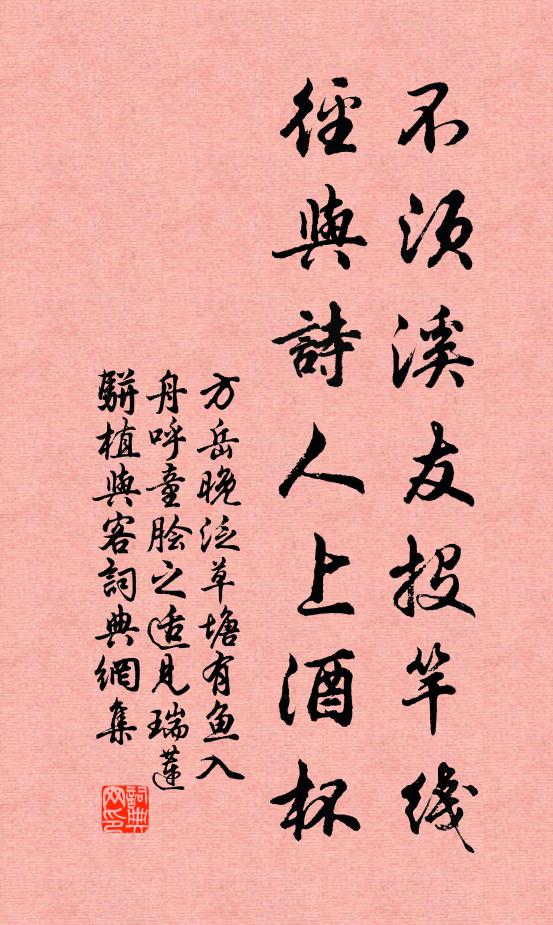 不須溪友投竿线
徑與詩人上酒杯
方岳晚泛草塘有魚入
舟呼童膾之适見瑞蓮
駢植與客詞典網集
詞典网印